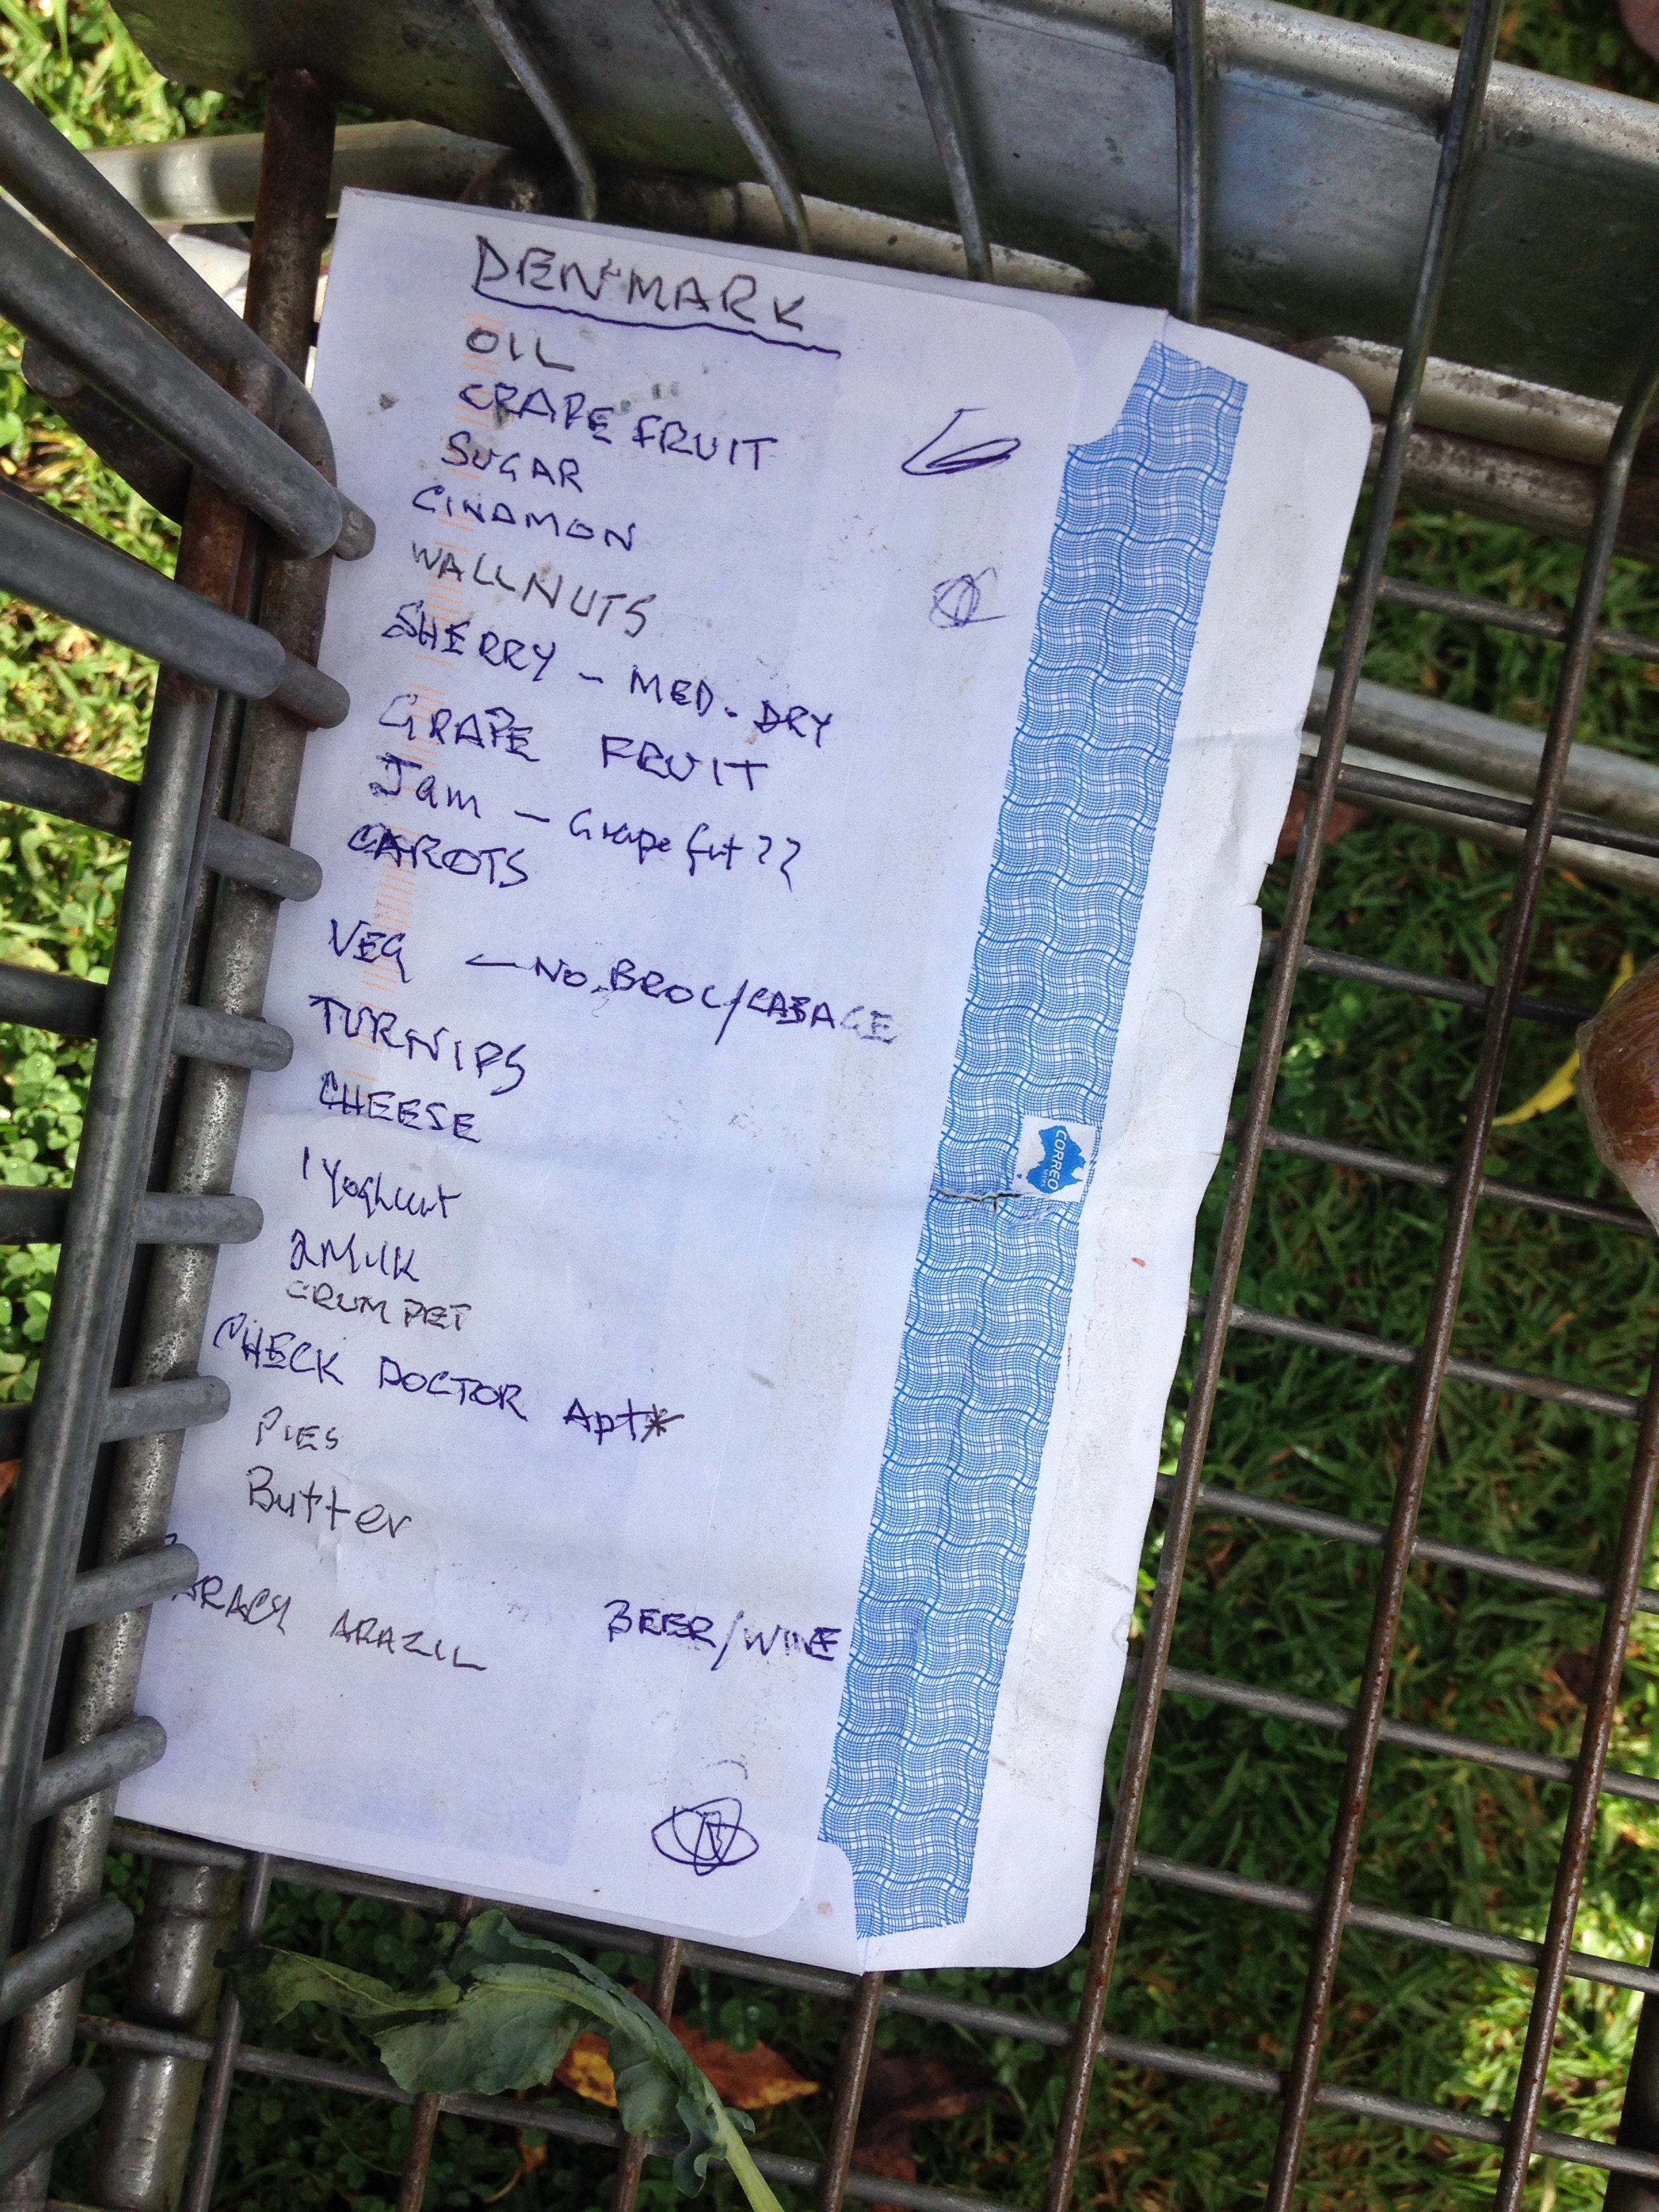 DENMARK
OIL
GRAPE FRUIT
SUGAR
CINAMON
WALLNUTS
SHERRY - MED. DRY
GRAPE FRUIT
Jam - Grape frt ??
CAROTS
VEG - NO BROC/CABAGE
TURNIPS
CHEESE
1 Yoghurt
2 MILK
CRUMPET
CHECK DOCTOR Apt*
PIES
Butter
BEER/WINE
CORREO